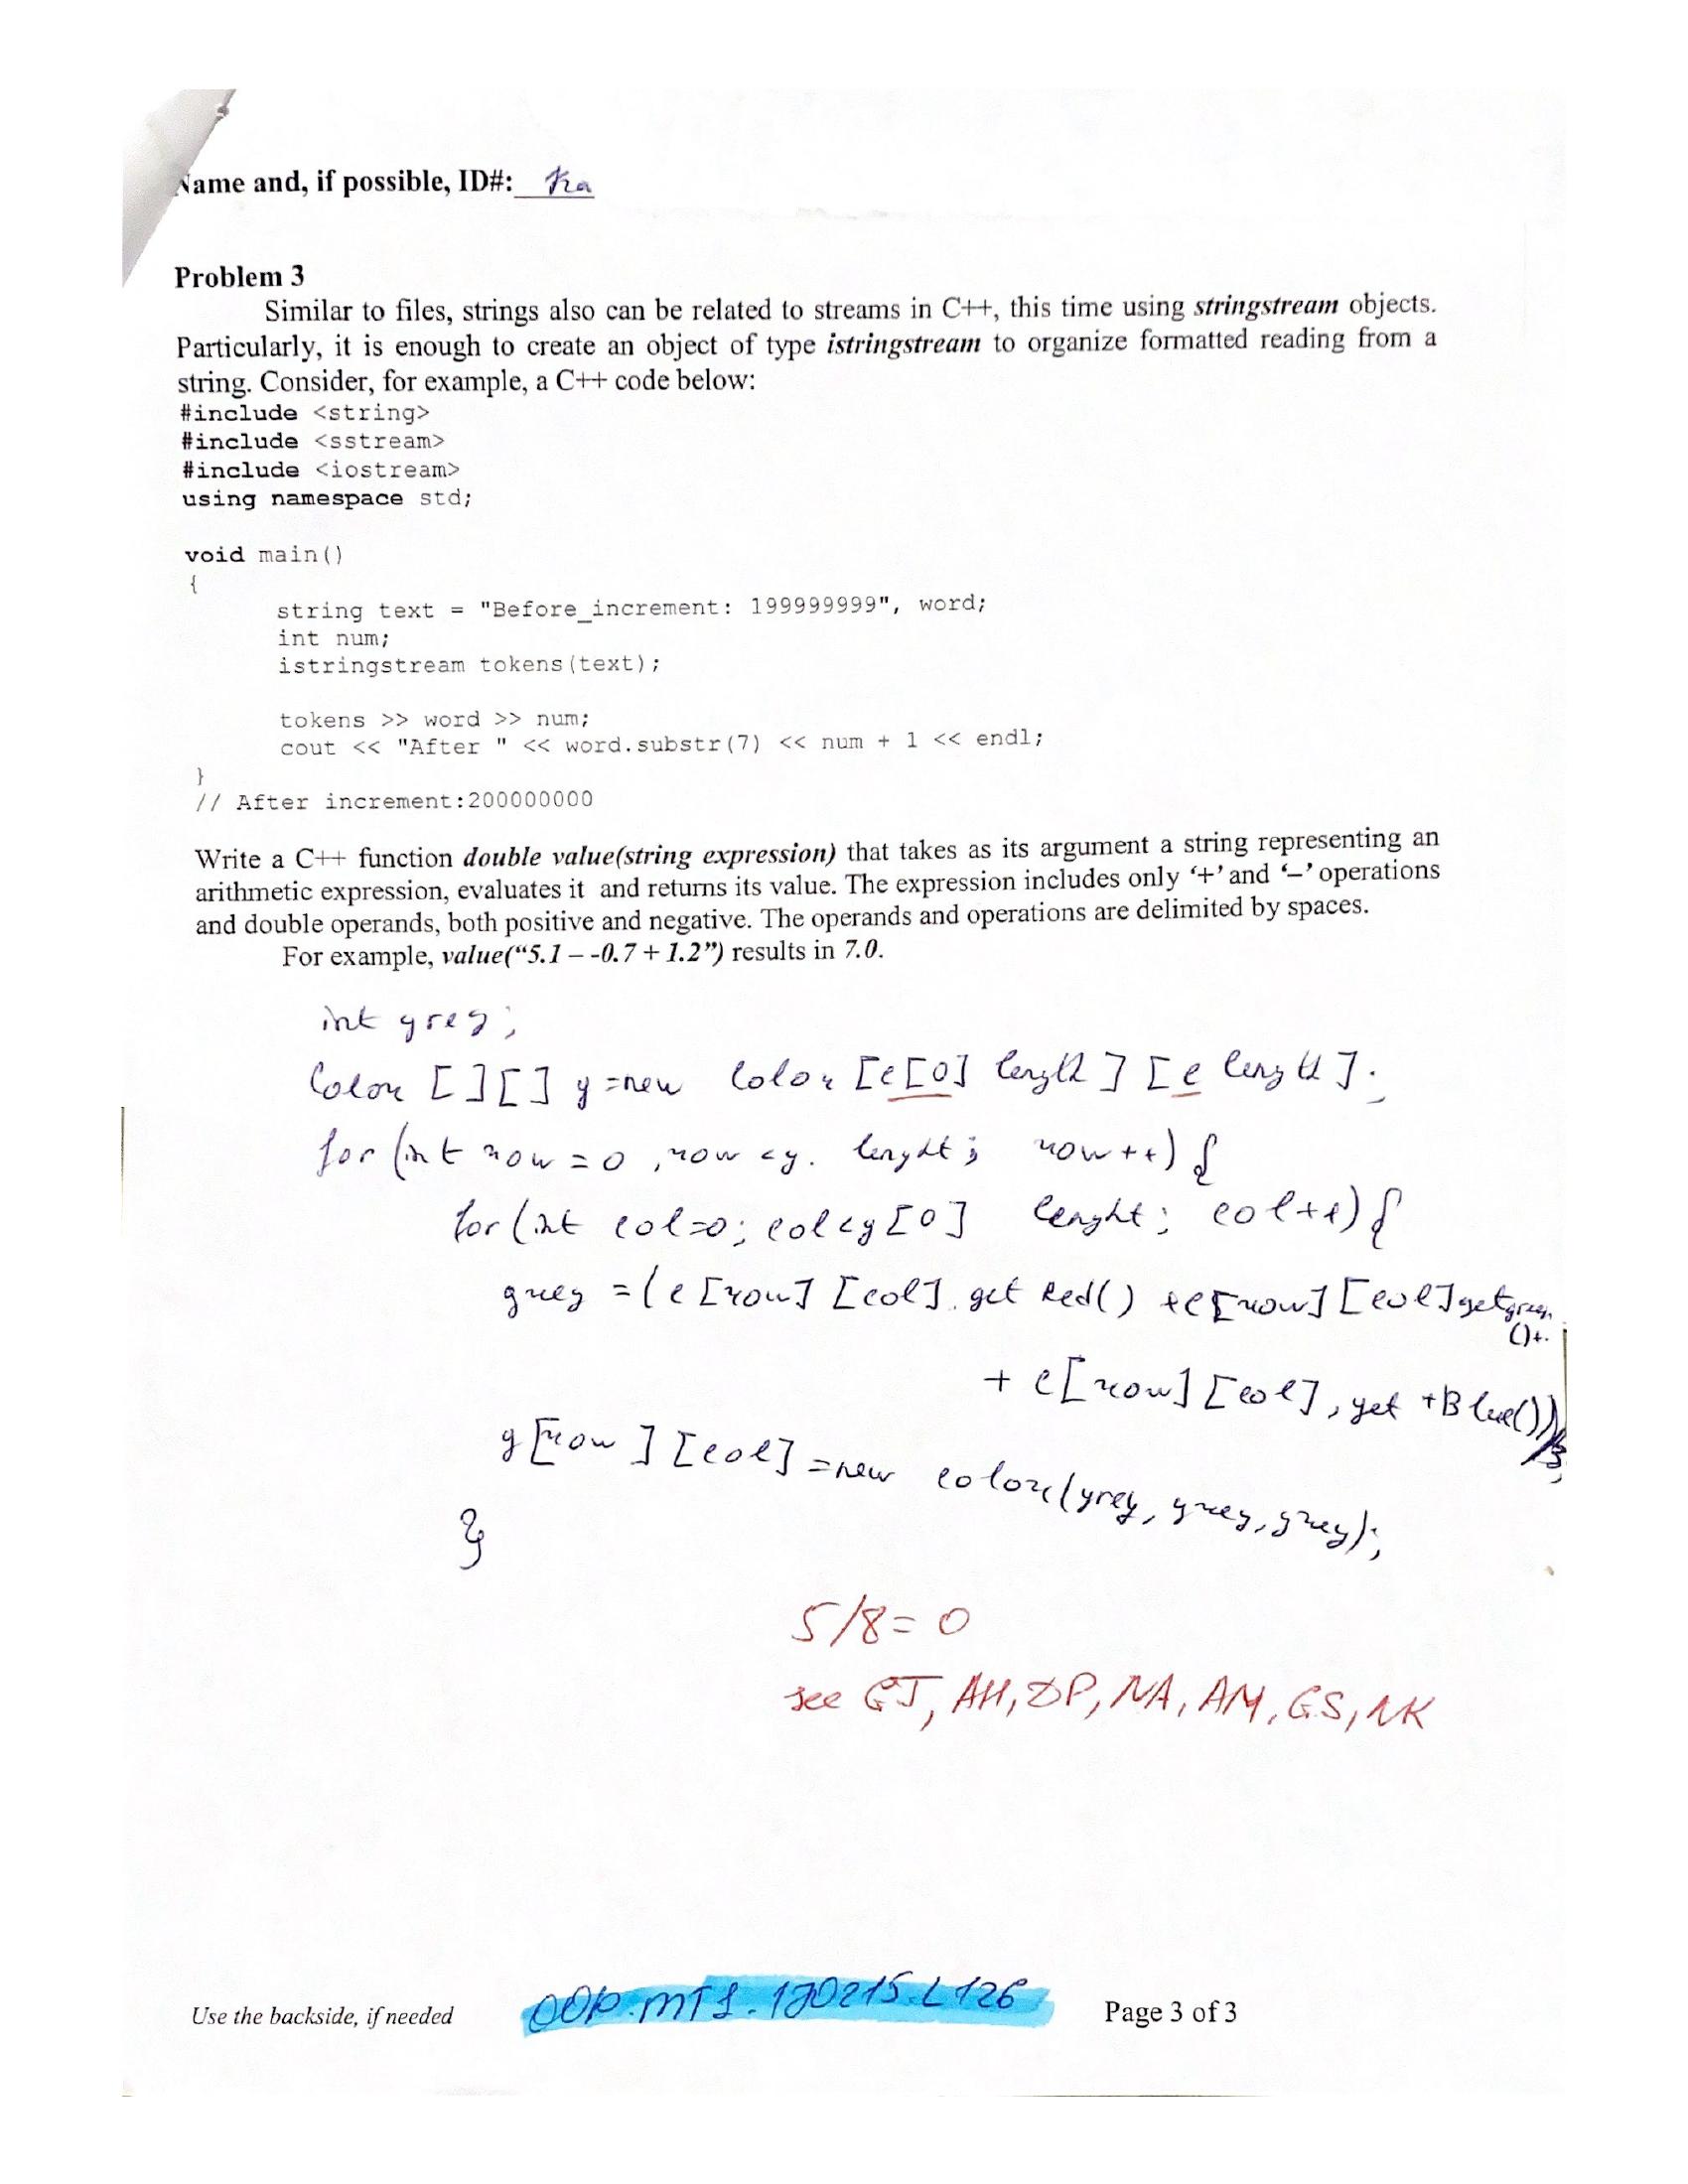 Name and, if possible, ID#: Ka
Problem 3
Similar to files, strings also can be related to streams in C++, this time using stringstream objects.
Particularly, it is enough to create an object of type istringstream to organize formatted reading from a
string. Consider, for example, a C++ code below:
#include <string>
#include <sstream>
#include <iostream>
using namespace std;
void main()
{
string text = "Before_increment: 199999999", word;
int num;
istringstream tokens(text);
tokens >> word >> num;
cout << "After " << word.substr(7) << num + 1 << endl;
}
// After increment:200000000
Write a C++ function double value(string expression) that takes as its argument a string representing an
arithmetic expression, evaluates it and returns its value. The expression includes only ‘+’ and ‘–’ operations
and double operands, both positive and negative. The operands and operations are delimited by spaces.
For example, value(“5.1 – -0.7 + 1.2”) results in 7.0.
int grey;
Color [][] g = new Color [c[0] length] [c length].
for (int row = 0, row < g. lenght; row++) {
for (int col=0; col<g[0] lenght; col++) {
grey = (c[row] [col]. get Red() + c[row] [col] get green
()+.
+ c[row] [col], get +Blue())/3;
g[row] [col] = new color(grey, grey, grey);
}
5/8 = 0
see GJ, AH, DP, NA, AM, GS, NK
Use the backside, if needed
OOP.MT1.170215.L126
Page 3 of 3